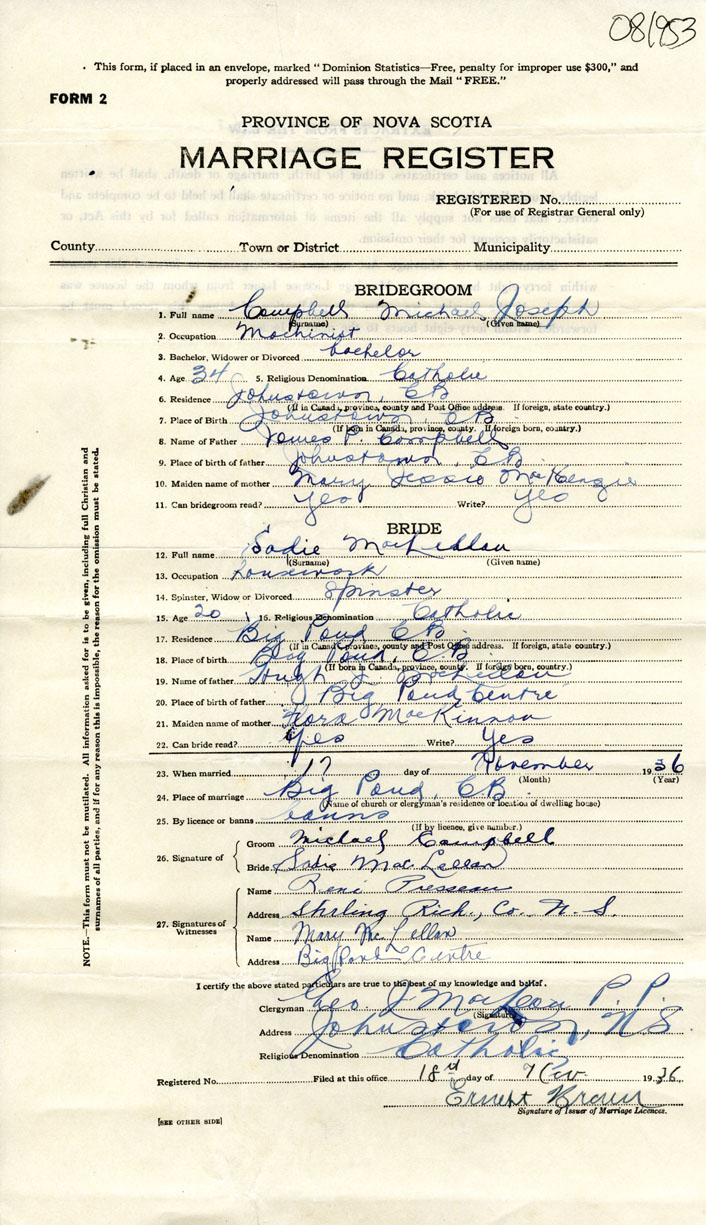 081953
This form, if placed in an envelope, marked "Dominion Statistics—Free, penalty for improper use $300," and
properly addressed will pass through the Mail "FREE."
FORM 2
PROVINCE OF NOVA SCOTIA
MARRIAGE REGISTER
REGISTERED No.
(For use of Registrar General only)
County Town or District Municipality
BRIDEGROOM
1. Full name Campbell Michael Joseph
(Surname) (Given name)
2. Occupation Machinist
3. Bachelor, Widower or Divorced bachelor
4. Age 34 5. Religious Denomination Catholic
6. Residence Johnstown, CB
(If in Canada, province, county and Post Office address. If foreign, state country.)
7. Place of Birth Johnstown CB
(If born in Canada, province, county. If foreign born, country.)
8. Name of Father James P. Campbell
9. Place of birth of father Johnstown, CB
10. Maiden name of mother Mary Jessie MacKenzie
11. Can bridegroom read? yes Write? yes
BRIDE
12. Full name Sadie MacLellan
(Surname) (Given name)
13. Occupation Housework
14. Spinster, Widow or Divorced Spinster
15. Age 20 16. Religious Denomination Catholic
17. Residence Big Pond CB
(If in Canada, province, county and Post Office address. If foreign, state country.)
18. Place of birth Big Pond, CB
(If born in Canada, province, county. If foreign born, country.)
19. Name of father Hugh J. MacLellan
20. Place of birth of father Big Pond Centre
21. Maiden name of mother Flora MacKinnon
22. Can bride read? yes Write? Yes
23. When married 17 day of November 1936
(Month) (Year)
24. Place of marriage Big Pond, CB
(Name of church or clergyman's residence or location of dwelling house)
25. By licence or banns banns
(If by licence, give number.)
26. Signature of
Groom Michael Campbell
Bride Sadie MacLellan
27. Signatures of Witnesses
Name Rene
Address Stirling Rich., Co. N.S.
Name Mary McLellan
Address Big Pond Centre
I certify the above stated particulars are true to the best of my knowledge and belief.
Clergyman Geo. J. P.P.
(Signature)
Address Johnstown, N.S.
Religious Denomination Catholic
Registered No. Filed at this office 18 day of Nov 1936
Ernest Brown
Signature of Issuer of Marriage Licences.
[SEE OTHER SIDE]
NOTE.—This form must not be mutilated. All information asked for is to be given, including full Christian and
surnames of all parties, and if for any reason this is impossible, the reason for the omission must be stated.